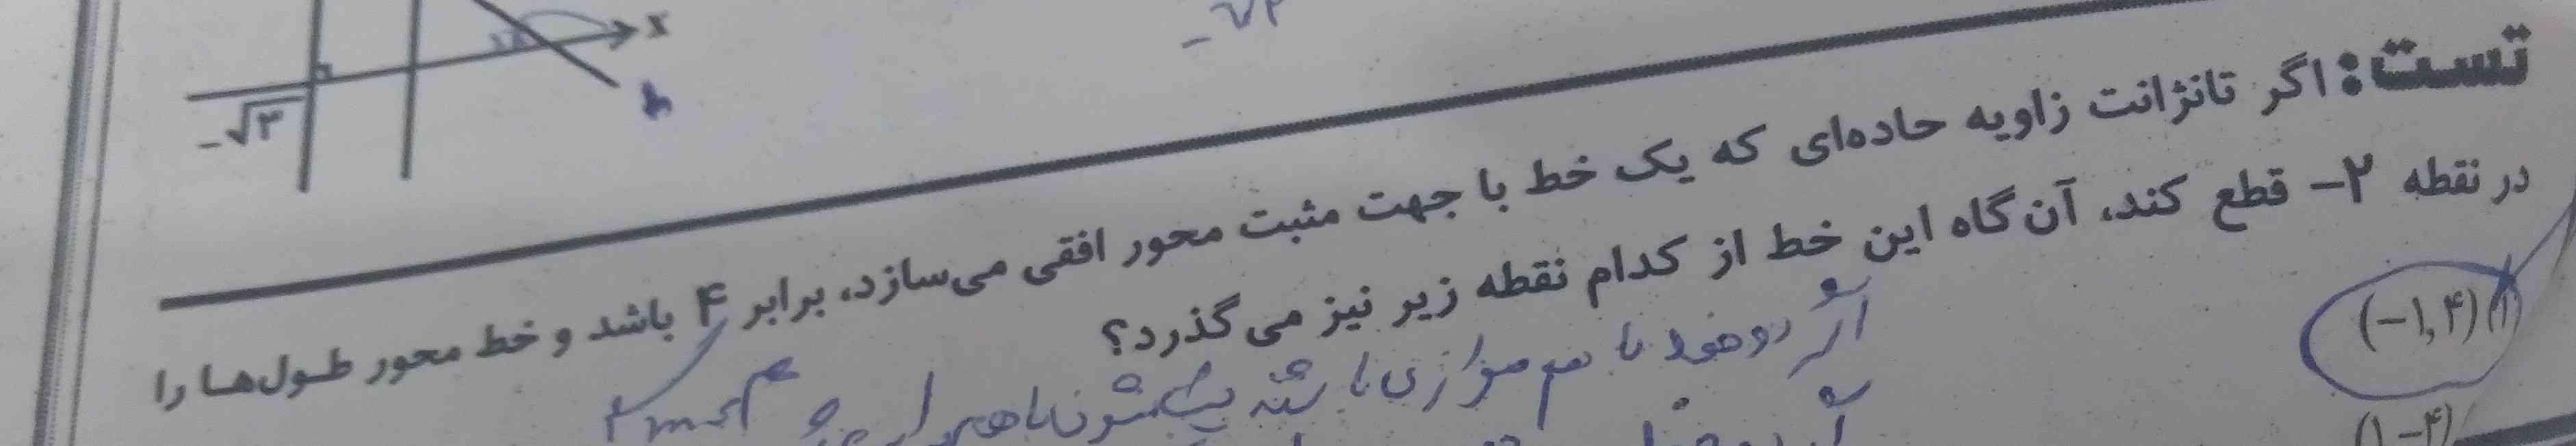 x
-√۳
-√۳
تست: اگر تانژانت زاویه حاده‌ای که یک خط با جهت مثبت محور افقی می‌سازد، برابر ۴ باشد و خط محور طول‌ها را
در نقطه ۲- قطع کند، آن‌گاه این خط از کدام نقطه زیر نیز می‌گذرد؟
۱) (-۱,۴)
اگر دو خط با هم موازی باشند شیبشون با هم برابره
(۱,-۴)